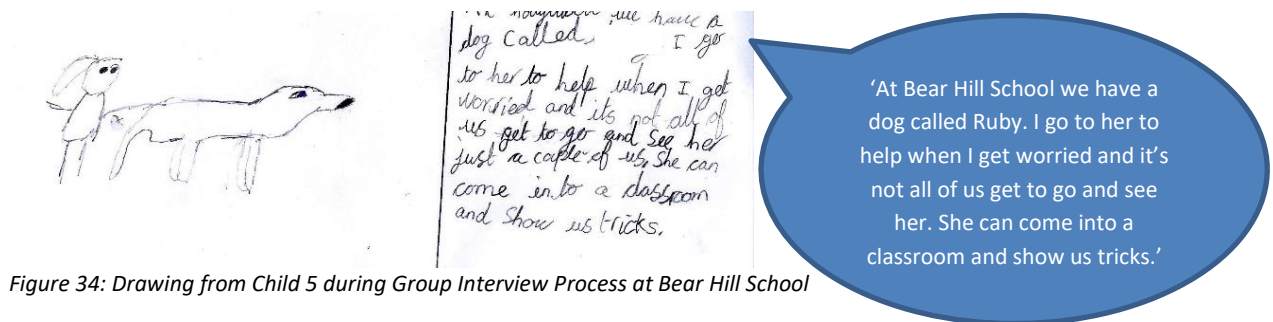 we have a
dog called. I go
to her to help when I get
worried and its not all of
us get to go and see her
just a caple of us, she can
come into a classroom
and show us tricks.
'At Bear Hill School we have a
dog called Ruby. I go to her to
help when I get worried and it's
not all of us get to go and see
her. She can come into a
classroom and show us tricks.'
Figure 34: Drawing from Child 5 during Group Interview Process at Bear Hill School